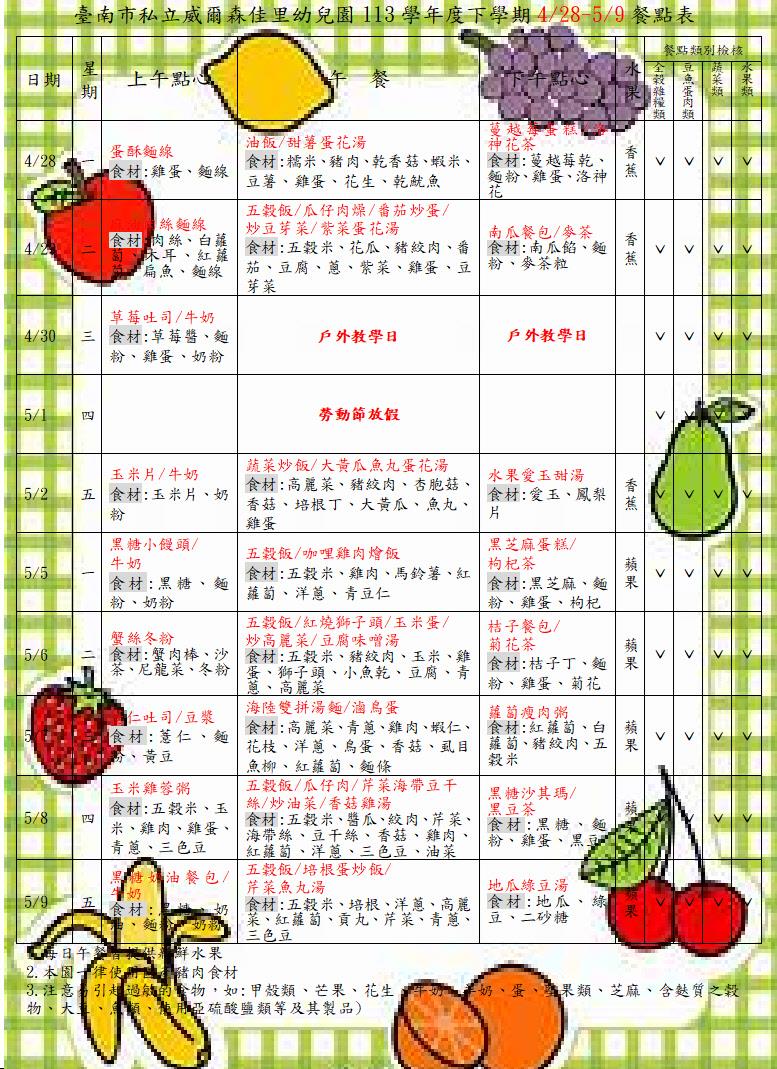 臺南市私立威爾森佳里幼兒園 113 學年度下學期 4/28-5/9 餐點表
日期 星期 上午點心 午 餐 下午點心 水果 餐點類別檢核
全穀雜糧類 豆魚蛋肉類 蔬菜類 水果類
4/28 一
蛋酥麵線
食材:雞蛋、麵線
油飯/甜薯蛋花湯
食材:糯米、豬肉、乾香菇、蝦米、
豆薯、雞蛋、花生、乾魷魚
蔓越莓蛋糕/洛
神花茶
食材:蔓越莓乾、
麵粉、雞蛋、洛神
花
香蕉
v v v v
4/29 二
絲麵線
食材:肉絲、白蘿
蔔、木耳、紅蘿
扁魚、麵線
五穀飯/瓜仔肉燥/番茄炒蛋/
炒豆芽菜/紫菜蛋花湯
食材:五穀米、花瓜、豬絞肉、番
茄、豆腐、蔥、紫菜、雞蛋、豆
芽菜
南瓜餐包/麥茶
食材:南瓜餡、麵
粉、麥茶粒
香蕉
v v v v
4/30 三
草莓吐司/牛奶
食材:草莓醬、麵
粉、雞蛋、奶粉
戶外教學日
戶外教學日
v v v v
5/1 四
勞動節放假
v v v v
5/2 五
玉米片/牛奶
食材:玉米片、奶
粉
蔬菜炒飯/大黃瓜魚丸蛋花湯
食材:高麗菜、豬絞肉、杏胞菇、
香菇、培根丁、大黃瓜、魚丸、
雞蛋
水果愛玉甜湯
食材:愛玉、鳳梨
片
香蕉
v v v v
5/5 一
黑糖小饅頭/
牛奶
食材:黑糖、麵
粉、奶粉
五穀飯/咖哩雞肉燴飯
食材:五穀米、雞肉、馬鈴薯、紅
蘿蔔、洋蔥、青豆仁
黑芝麻蛋糕/
枸杞茶
食材:黑芝麻、麵
粉、雞蛋、枸杞
蘋果
v v v v
5/6 二
蟹絲冬粉
食材:蟹肉棒、沙
茶、尼龍菜、冬粉
五穀飯/紅燒獅子頭/玉米蛋/
炒高麗菜/豆腐味噌湯
食材:五穀米、豬絞肉、玉米、雞
蛋、獅子頭、小魚乾、豆腐、青
蔥、高麗菜
桔子餐包/
菊花茶
食材:桔子丁、麵
粉、雞蛋、菊花
蘋果
v v v v
5/ 三
仁吐司/豆漿
食材:薏仁、麵
粉、黃豆
海陸雙拼湯麵/滷鳥蛋
食材:高麗菜、青蔥、雞肉、蝦仁、
花枝、洋蔥、鳥蛋、香菇、虱目
魚柳、紅蘿蔔、麵條
蘿蔔瘦肉粥
食材:紅蘿蔔、白
蘿蔔、豬絞肉、五
穀米
蘋果
v v v v
5/8 四
玉米雞蓉粥
食材:五穀米、玉
米、雞肉、雞蛋、
青蔥、三色豆
五穀飯/瓜仔肉/芹菜海帶豆干
絲/炒油菜/香菇雞湯
食材:五穀米、醬瓜、絞肉、芹菜、
海帶絲、豆干絲、香菇、雞肉、
紅蘿蔔、洋蔥、三色豆、油菜
黑糖沙其瑪/
黑豆茶
食材:黑糖、麵
粉、雞蛋、黑豆
蘋
v v v v
5/9 五
黑糖奶油餐包/
牛奶
食材:黑糖、奶
油、麵粉、奶粉
五穀飯/培根蛋炒飯/
芹菜魚丸湯
食材:五穀米、培根、洋蔥、高麗
菜、紅蘿蔔、貢丸、芹菜、青蔥、
三色豆
地瓜綠豆湯
食材:地瓜、綠
豆、二砂糖
蘋果
v v v v
每日午餐皆提供新鮮水果
2.本園一律使用國產豬肉食材
3.注意易引起過敏的食物，如:甲殼類、芒果、花生、牛奶、羊奶、蛋、堅果類、芝麻、含麩質之穀
物、大豆、魚類、使用亞硫酸鹽類等及其製品)